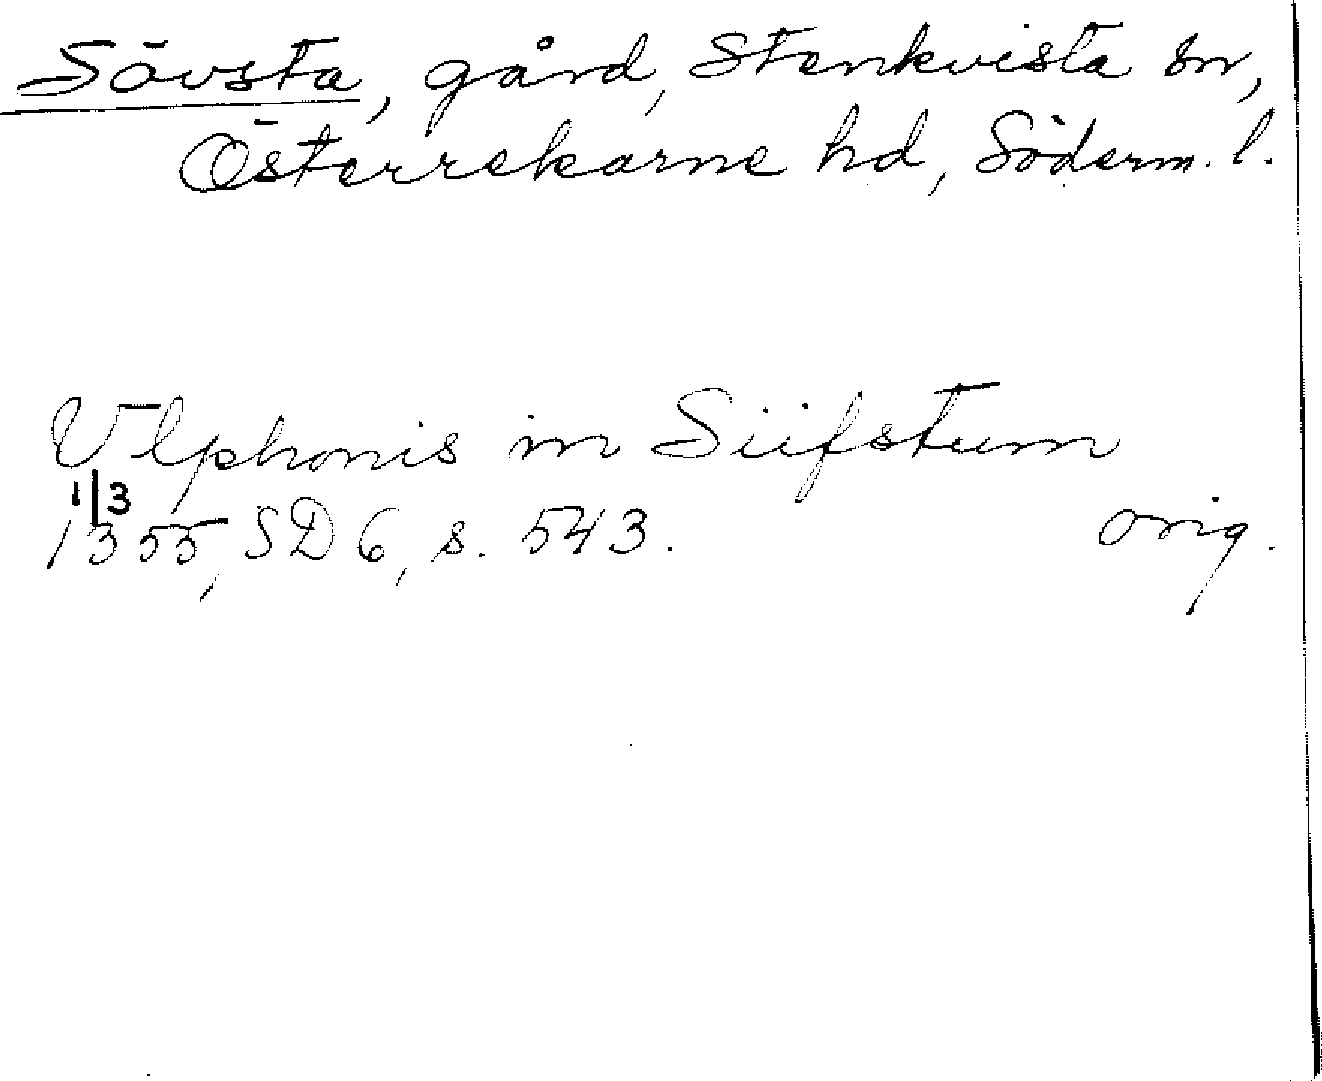 Sövsta, gård, Stenkvista sn,
Österrekarne hd, Söderm. l.
Vlphonis in Siifstum
1/3
1355, SD 6, s. 543. orig.